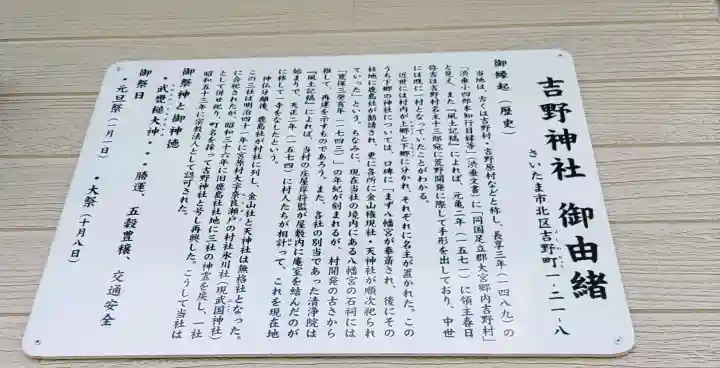 吉野神社 御由緒
さいたま市北区吉野町一-二一-八
御縁起(歴史)
当地は、古くは吉野村・吉野原村などと称し、長享三年(一四八九)の
「渋垂小四郎本知行目録等」(渋垂文書)に「同国足立郡大宮郷内吉野村」
と見え、また『風土記稿』によれば、元亀二年(一五七一)に領主春日
弥吉は吉野村名主十三郎宛に荒野開発に際して手形を出しており、中世
には既に一村となっていたことがわかる。
近世には村内が上郷と下郷にわかれ、それぞれに名主が置かれた。この
うち下郷の神社については、口碑に「まず八幡宮が奉斎され、後にその
社地に鹿島社が勧請され、更に各所に金山権現社・天神社が順次祀られ
ていった」という。ちなみに、現在当社の境内にある八幡宮の石祠には
「寛保三癸亥年(一七四三)」の年紀が刻まれるが、村開発の古さから
推して、再建を示すものであろう。また、各社の別当であった清浄院は
『風土記稿』によれば、当村の庄屋岸将監が屋敷内に庵室を結んだのが
始まりで、天正二年(一五七四)に村人たちが相計って、これを現在地
に移して一寺をなしたという。
神仏分離後、鹿島社が村社に列し、金山社と天神社は無格社となった。
この三社は明治四十一年に宮原村大字奈良瀬戸の村社氷川社(現武国神社)
に合祀されたが、昭和三十六年に旧鹿島社社地に三社の神霊を戻し、一社
として併せ祀り、町名を採って吉野神社と号し再興した。こうして当社は
昭和五十三年に宗教法人として認可された。
御祭神と御神徳
・武甕槌大神・・・勝運、五穀豊穣、交通安全
御祭日
・元旦祭(一月一日) ・大祭(十月八日)